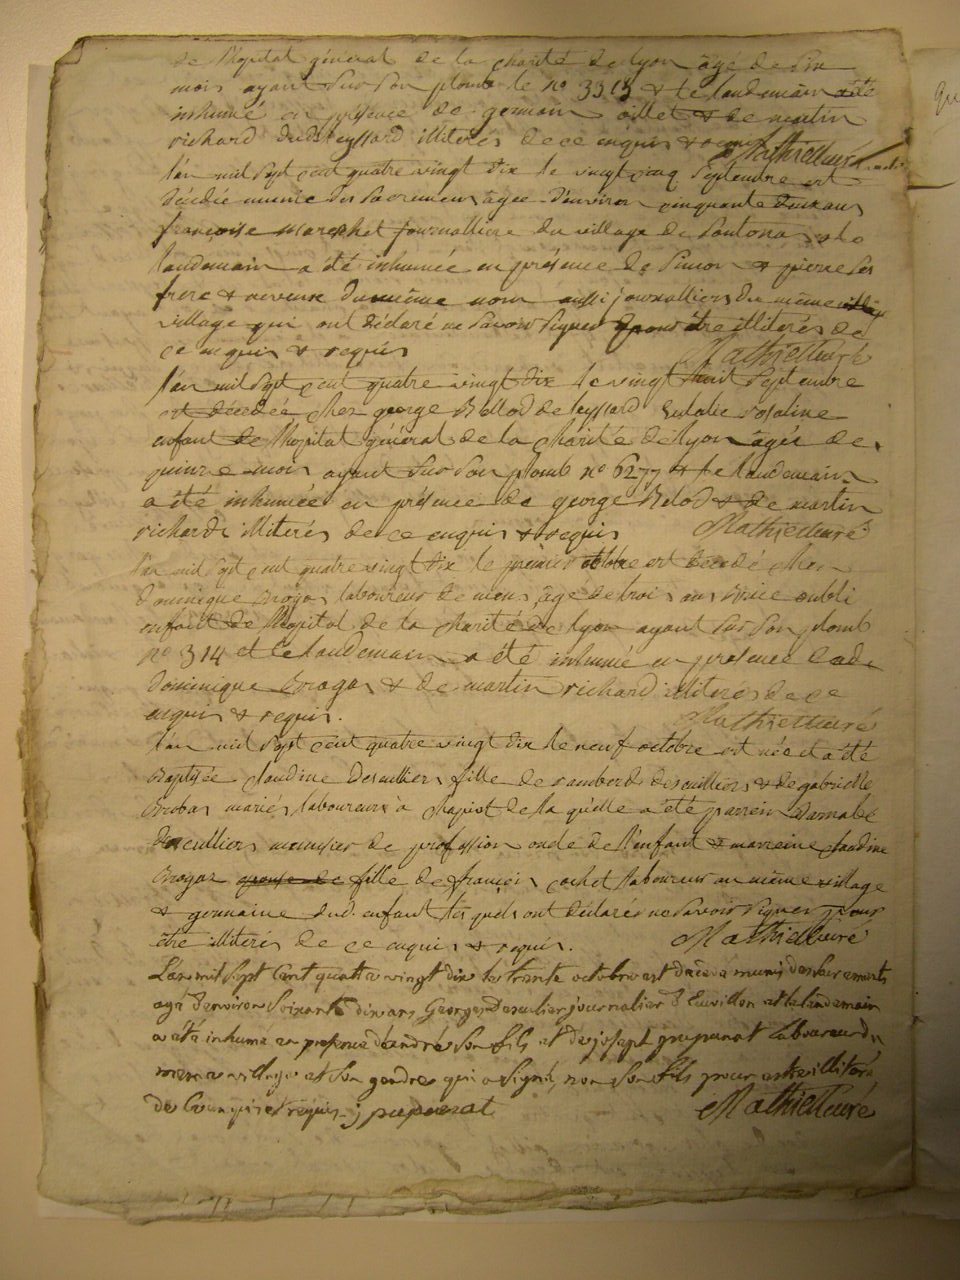 de l'hopital général de la charité de lyon âgé de six
mois ayant sur son plomb le n° 3313 & le landemain a été
inhumé en présence de germain oillet & de martin
richard dud. Leyssard illiterés de ce enquis & requis Mathieu curé
l'an mil sept cent quatre vingt dix le vingt cinq septembre est
décédée munie des sacremens agée d'environ cinquante deux ans
françoise mareschet journalliere du village de Soutonas & le
landemain a été inhumée en présence de Simon & pierre ses
frere & neveux du même nom aussi journalliers du même
village qui ont déclaré ne savoir signer pour être illiterés de
ce enquis & requis Mathieu curé
l'an mil sept cent quatre vingt dix le vingt huit septembre
est décedée chez george Bellod de leyssard Eulalie rosaline
enfant de l'hopital général de la charité de lyon agée de
quinze mois ayant sur son plomb n° 6277 & le landemain
a été inhumée en présence de george Belod & de martin
richard illiterés de ce enquis & requis Mathieu curé
l'an mil sept cent quatre vingt dix le premier octobre est décédé chez
dominique Brogas laboureur de mens, âgé de trois ans
enfant de l'hopital de la charité de lyon ayant sur son plomb
n° 314 et le landemain a été inhumé en présence dud.
dominique Brogas & de martin richard illiterés de ce
enquis & requis. Mathieu curé
l'an mil sept cent quatre vingt dix le neuf octobre est née et a été
Baptisée claudine Desculliers fille de rambert desculliers & de gabrielle
mariés laboureurs à de la quelle a été parrein Barnabé
Desculliers meunier de profession oncle de l'enfant & marreine claudine
Brogaz fille de françois cochet laboureur au même village
& germaine dud. enfant les quels ont déclarés ne savoir signer pour
être illiterés de ce enquis & requis. Mathieu curé
L'an mil sept cent quatre vingt dix le trante octobre est décédé munis des sacremants
agé d'environ soixante dix ans Georges Desculier journalier d'Euvillon et le landemain
a été inhumé en presence d'andré son fils et de joseph laboureur du
meme village et son gendre qui a signé, non son fils pour estre illitéré
de ce enquis et requis j Mathieu curé